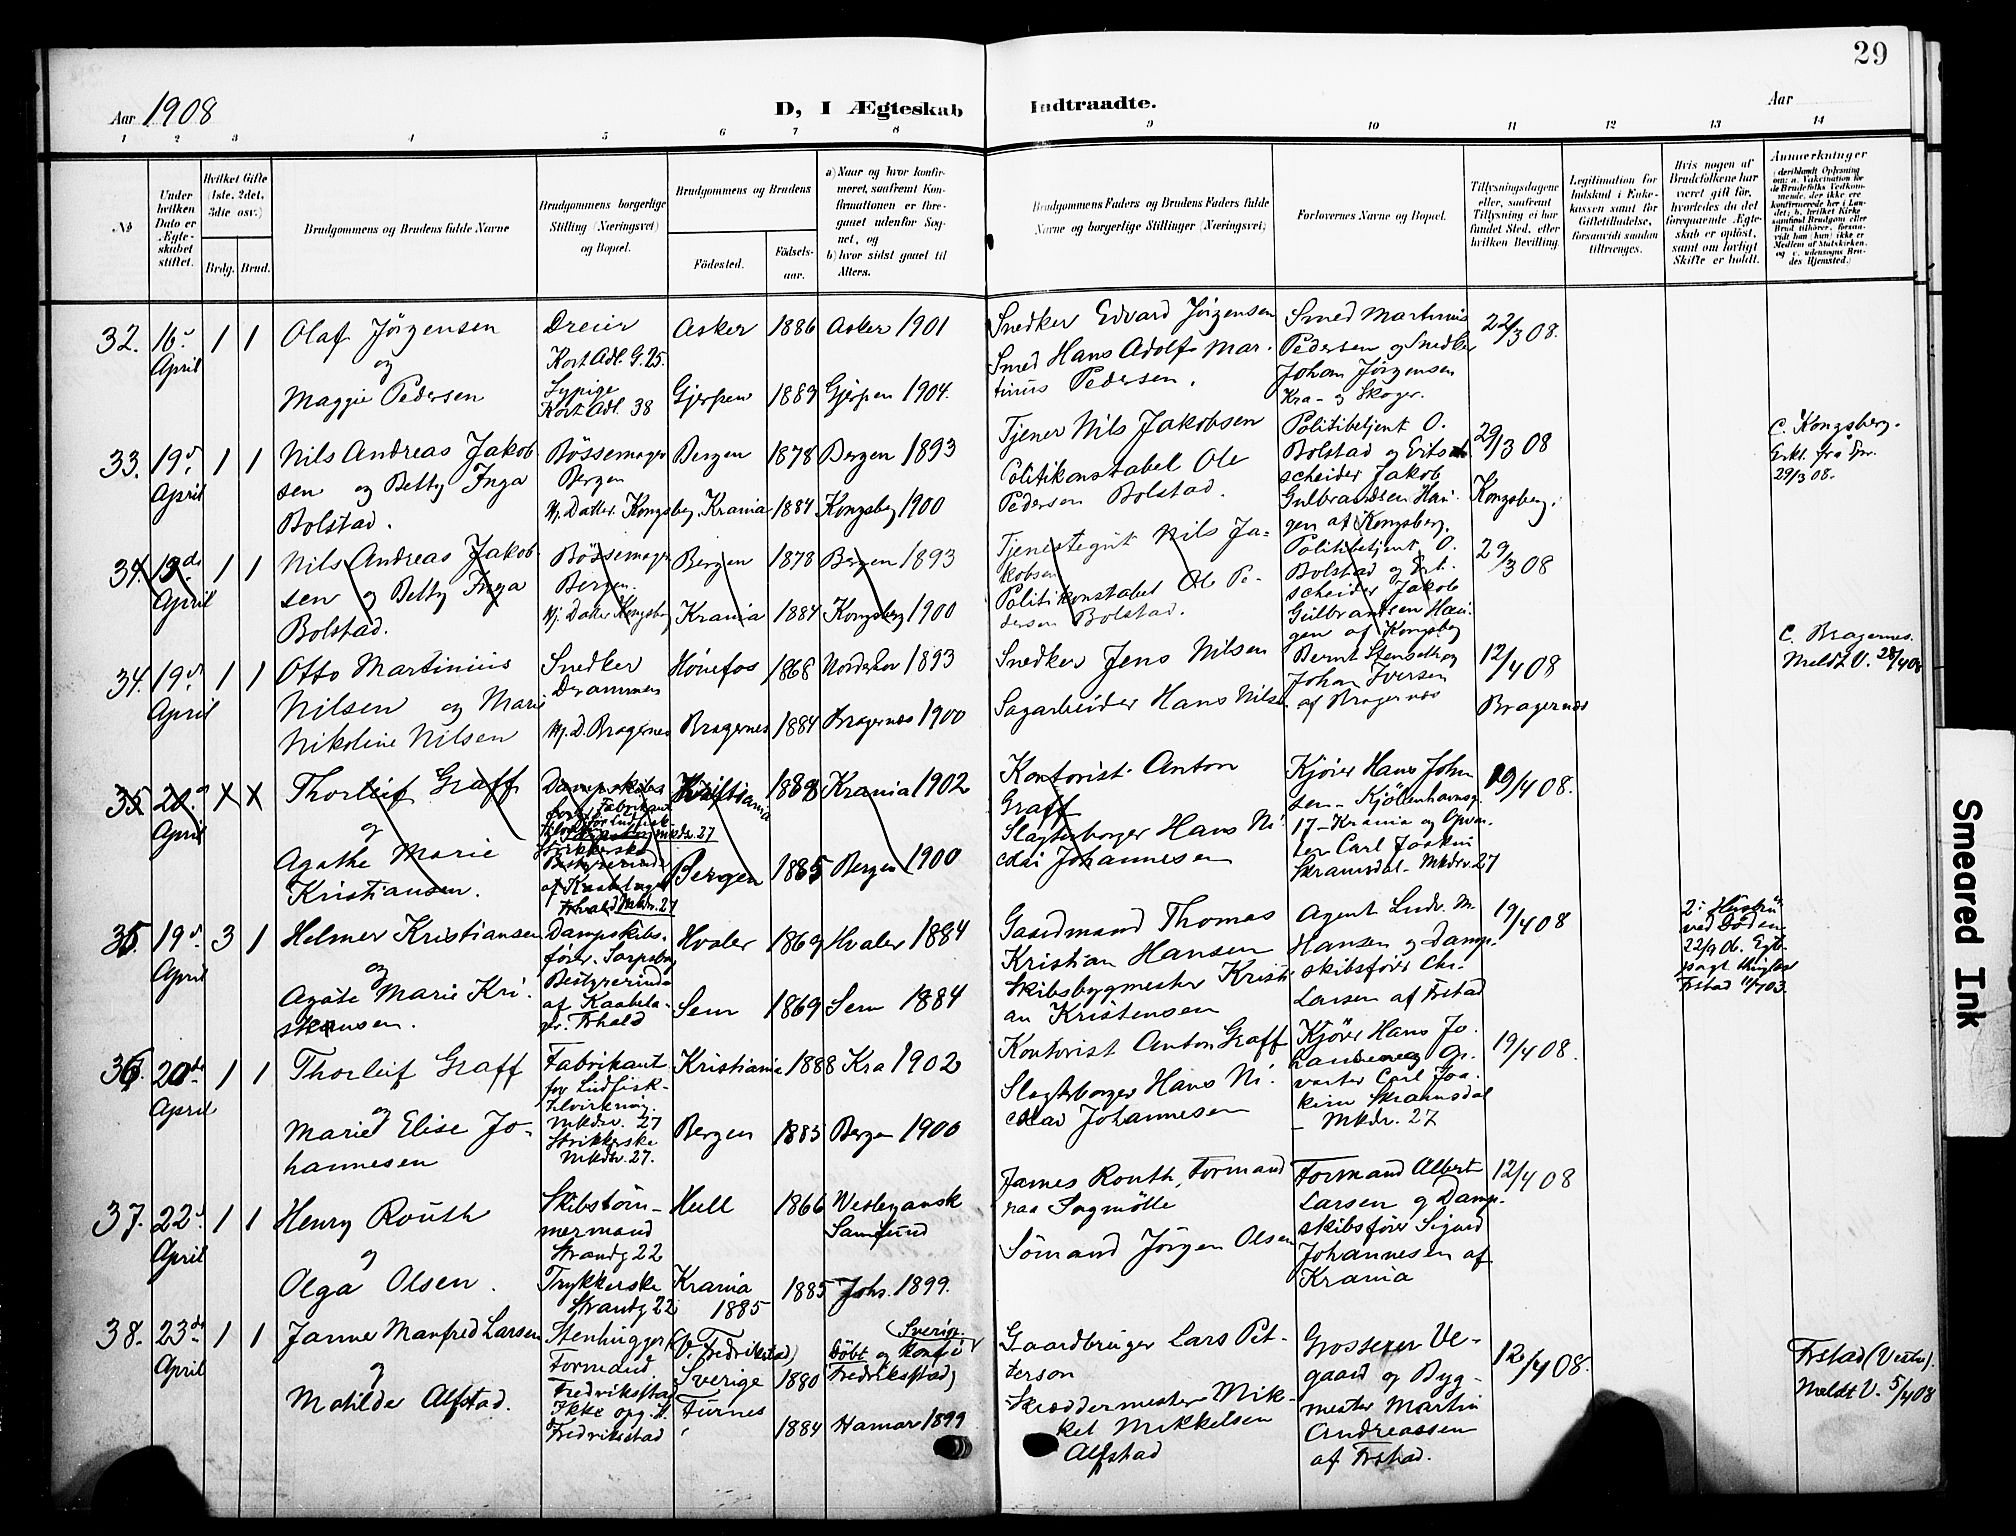 29
Aar 1908
D, I Ægteskab Indtraadte.
Aar
1 2 3 4 5 6 7 8 9 10 11 12 13 14
No
Under hvilken Dato er Ægteskabet stiftet.
Hvilket Gifte (1ste, 2det, 3die osv.)
Brdg. Brud.
Brudgommens og Brudens fulde Navne
Brudgommens borgerlige Stilling (Næringsvei) og Bopæl.
Brudgommens og Brudens
Fødested.
Fødselsaar.
a) Naar og hvor konfirmeret, saafremt Konfirmationen er foregaaet udenfor Sognet, og
b) hvor sidst gaaet til Alters.
Brudgommens Faders og Brudens Faders fulde Navne og borgerlige Stillinger (Næringsvei)
Forlovernes Navne og Bopæl.
Tillysningsdagene eller, saafremt Tillysning ei har fundet Sted, efter hvilken Bevilling.
Legitimation for Indskud i Enkekassen samt for Giftetilladelse, forsaavidt saadan tiltrænges.
Hvis nogen af Brudefolkene har været gift før, hvorledes da det foregaaende Ægteskab er opløst, samt om lovligt Skifte er holdt.
Anmerkninger
32. 16. April 1 1
Olaf Jörgensen
og
Maggie Pedersen
Dreier
Kort Adl. G. 25.
Sypige
Kort Adl. 38
Asker 1886 Asker 1901
Gjerpen 1889 Gjerpen 1904.
Snedker Edvard Jörgensen
Smed Hans Adolf Mar-
tinius Pedersen.
Smed Martinius
Pedersen og Snedker
Johan Jörgensen
Kra- og Skoger.
22/3 08.
33. 19d. April 1 1
Nils Andreas Jakob
sen og Betty Inga
Bolstad.
Bössemager
Bergen
Hj. Datter. Kongsberg.
Bergen 1878 Bergen 1893
Krania 1884 Kongsberg 1900
Tjener Nils Jakobsen
Politikonstabel Ole
Pedersen Bolstad.
Politibetjent O.
Bolstad og Erts
scheider Jakob
Gulbrandsen Hau-
gen af Kongsberg.
29/3 08
Kongsberg.
C. Kongsberg.
29/3 08.
34. 19de April 1 1
Nils Andreas Jakob
sen og Betty Inga
Bolstad.
Bössemager
Bergen.
Hj. Datter Kongsberg
Bergen 1878 Bergen 1893
Krania 1884 Kongsberg 1900
Tjenestegut Nils Ja-
kobsen
Politikonstabel Ole Pe-
dersen Bolstad.
Politibetjent O.
Bolstad og Ert-
scheider Jakob
Gulbrandsen Hau-
gen af Kongsberg
29/3 08
34. 19d. April 1 1
Otto Martinius
Nilsen og Marie
Nikoline Nilsen
Snedker
Drammen
Hj. D. Bragernes
Hönefos 1868 Norderhov 1893
Bragernes 1884 Bragernes 1900
Snedker Jens Nilsen
Sagarbeider Hans Nilsen
Bernt Stenseth og
Johan Iversen
af Bragernes
12/4 08
Bragernes
C. Bragernes.
Meldt V. 28/4 08
35 20. April
Thorleif Graff
og
Agathe Marie
Kristiansen.
Dampskibs
Bestyrerinde
Mkdr. 27
Kristiania 1888 Krania 1902
Bergen 1885 Bergen 1900
Kontorist Anton
Graff
Slagterborger Hans Ni
colai Johannesen
Kjörer Hans John
sen - Kjöbenhavnsg.
17 - Krania og Opvar-
ter Carl Joakim
Skramsdal - Mkdr. 27
19/4 08.
35 19d. April 3 1
Helmer Kristiansen
og
Agåte Marie Kri-
stensen.
Dampskibs-
förer. Sarpsborg
Bestyrerinde
af Kaabela-
ger. Frhald
Hvaler 1869 Hvaler 1884
Sem 1869 Sem 1884
Gaardmand Thomas
Kristian Hansen
Skibsbygmester Kristi
an Kristensen
Agent Ludv. M.
Hansen og Damp-
skibsförer Chr.
Larsen af Frstad
19/4 08
2. Hustru
ved Döden
22/9 06.
Frstad 11/7 03.
36 20de April 1 1
Thorleif Graff
og
Marie Elise Jo-
hannesen
Fabrikant
for Ludfisk-
tilvirkning.
Mkdr. 27
Strikkerske
Mkdr. 27.
Kristiania 1888 Kra 1902
Bergen 1885 Bergen 1900
Kontorist Anton Graff
Slagterborger Hans Ni-
colai Johannesen
Kjörer Hans Jo-
hansen og Op-
varter Carl Joa-
kim Skramsdal
- Mkdr. 27
19/4 08.
37. 22. April 1 1
Henry Routh
og
Olga Olsen.
Skibstöm-
mermand
Strandg 22
Trykkerske
Strandg 22
Hull 1866 Wesleyansk
Samfund
Krania 1885
1885 Johs. 1899.
James Routh, Formand
paa Sagmölle
Sömand Jörgen Olsen
Formand Albert
Larsen og Damp-
skibsförer Sigurd
Johannesen af
Krania
12/4 08
38. 23de April 1 1
Janne Manfred Larsen
og
Matilde Alfstad.
Stenhugger
Formand
Fredriksstad
Ikke opg. St.
Fredriksstad
(V. Fredrikstad)
Sverige 1880
Furnes 1884
(Sverige.
Döbt og konfir
Fredriksstad)
Hamar 1899
Gaardbruger Lars Pet-
terson
Skreddermester Mik-
kel Mikkelsen
Alfstad
Grosserer Ve-
gaard og Byg-
mester Martin
Andreassen
af Frstad.
12/4 08.
Frstad (Vestre).
Meldt V. 5/4 08
Smeared Ink